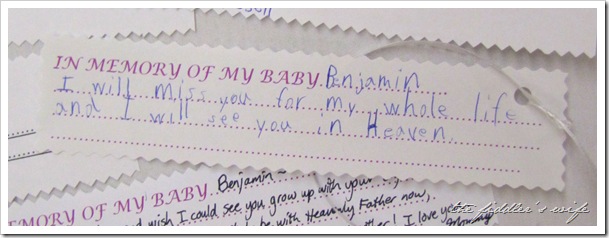 IN MEMORY OF MY BABY. Benjamin
I will miss you for my whole life
and I will see you in Heaven.
MEMORY OF MY BABY. Benjamin -
wish I could see you grow up with your
be with Heavenly Father now,
I love you
the fiddler's wife